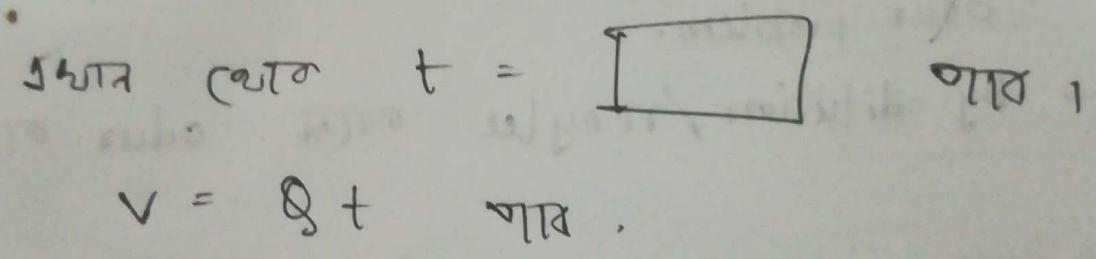 এখান থেকে t = পাব ।
V = Qt পাব .